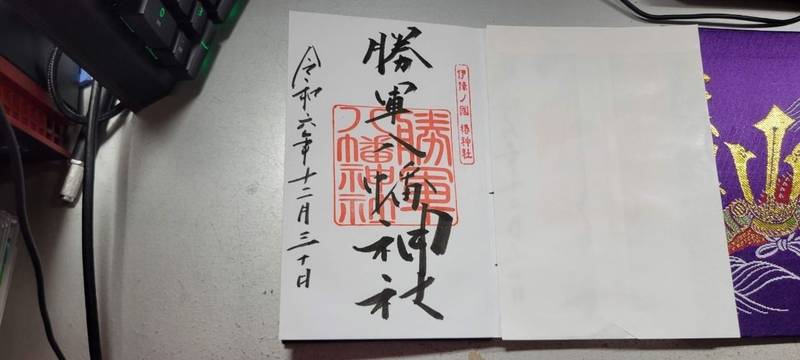 伊豫ノ國 椿神社
勝軍八幡神社
勝軍
八幡神社
令和六年十二月三十日